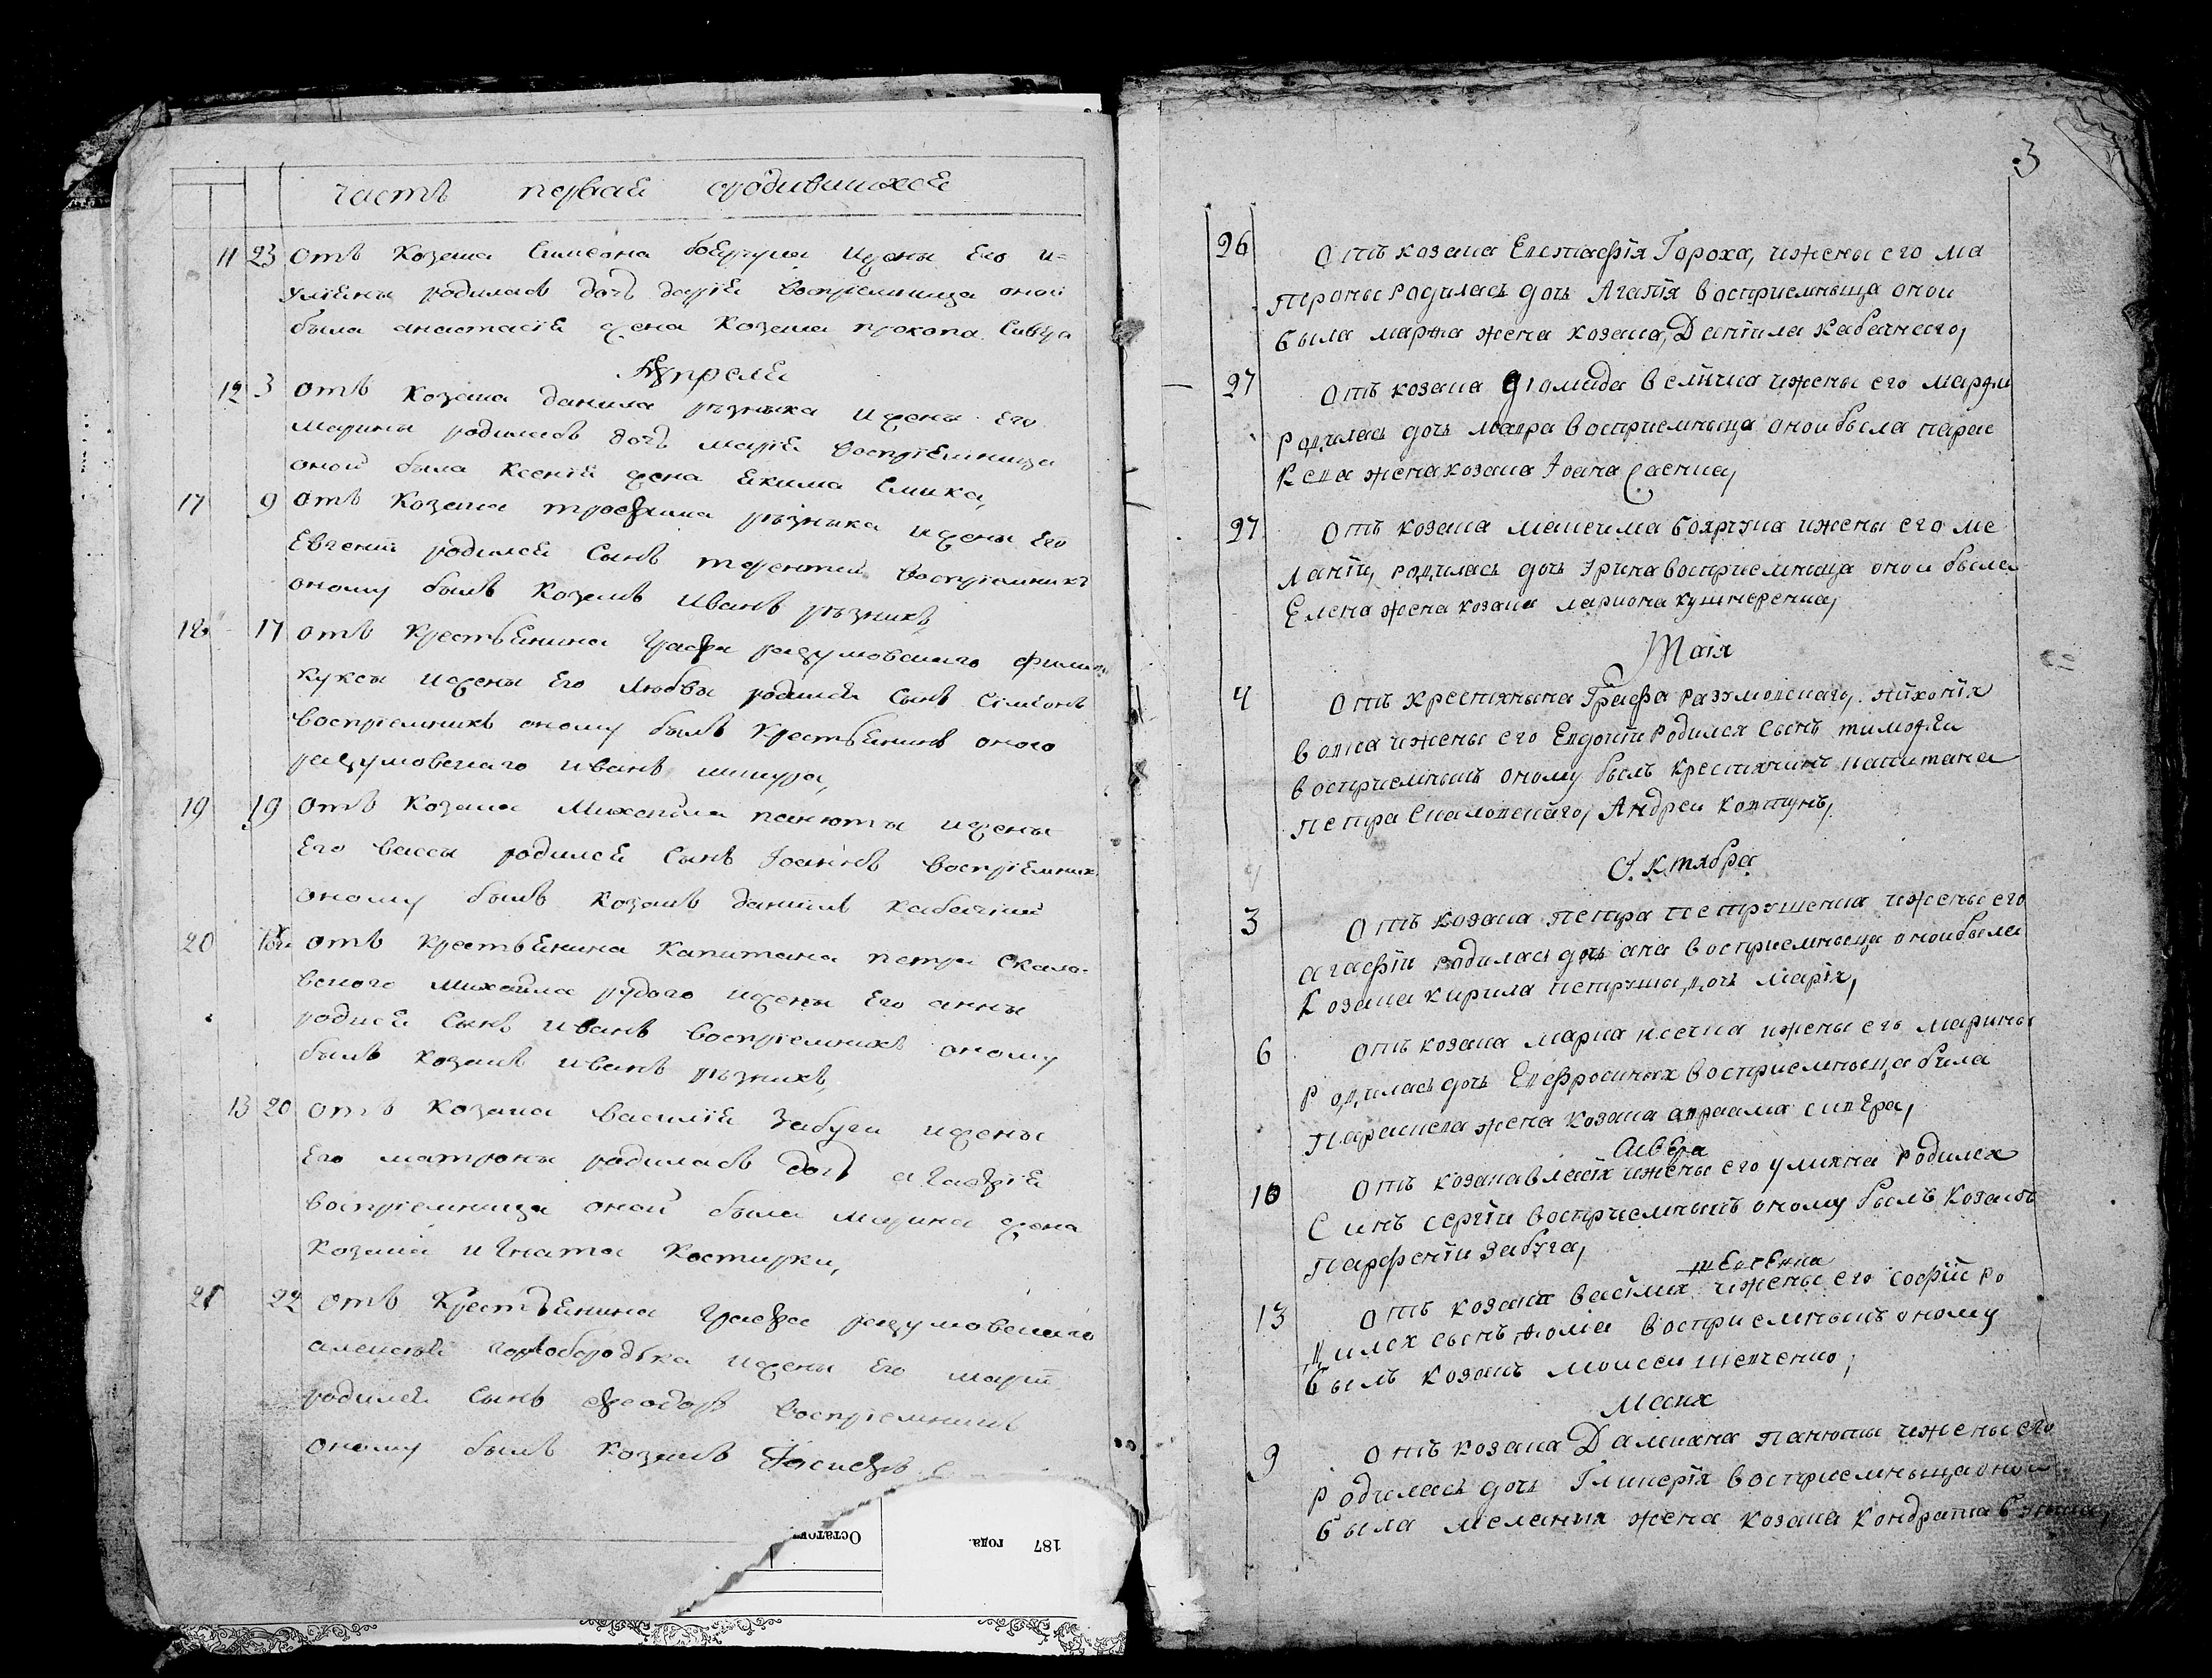 часть первая ородившихся
11 23 отъ Козака Симеона боярчука ижены Его и=
улiяны родилась дочъ дарiя воспрiемница оной
была анастасiя жена Козака прокопа Сивера
Априля
12 3 отъ Козака данила рѣзника ижены Его
марины родилась дочъ марiя воспрiемница
оной была Ксенiя жена Екима Смика,
17 9 отъ Козака трофима рѣзника ижены Его
Евгенiи родился Сынъ терентiй воспрiемникъ
оному былъ Козакъ Иванъ рѣзникъ,
18 17 отъ Крестьянина Графа разумовскаго
куксы ижены Его Любвы родился Сынъ Сiмеонъ
воспрiемникъ оному былъ Крестьянинъ оного
разумовскаго иванъ шкура,
19 19 отъ Козака Михаила панюты ижены
Его вассы родился Сынъ Iоаннъ воспрiемникъ
оному былъ Козакъ данiилъ кабачнiй
20 отъ Крестьянина Капитана петра Скало-
вского Михаила рудого ижены Его анны
родися Сынъ иванъ воспрiемникъ оному
былъ козакъ иванъ рѣзникъ,
13 20 отъ Козака василiя Забуги ижены
Его матроны родилась дочъ агафiя
воспрiемница оной была марина жена
Козака игната Костирки,
21 22 отъ Крестьянина Графа разумовскаго
алексѣя ижены Его
родился Сынъ феодоръ воспрiемникъ
оному былъ Козакъ Iосифъ
Остатокъ
187 года.
3
26 Отъ козака Евстафiя Гороха, ижены его ма
троны родилась дочь Агапiя восприемныца оной
была марθа жена козака, Данiила Кабачнего,
27 Отъ козака Дiомида величка ижены его марфи
родилась дочь мавра восприемныца оной была парас
кева жена козака Iоана Саенка,
27 Отъ козака максима боярчука ижены его ме
ланiи, родилась дочь Iрина восприемница оной была
Елена жена козака лариона кушнеренка,
Маiя
4 Отъ крестянына Графа разумовскаго,
вовка ижены его Евдокiи родился сынъ тимофѣй
восприемныкъ оному былъ крестянинъ капитана
петра Скаловскаго, Андрей Ковтунъ,
Октября
3 Отъ козака петра петрушенка ижены его
агафiи родилась дочь ана восприемныца оной была
Козака кирила петруша, дочь марiя,
6 Отъ козака марка ижены его марины
родилась дочь Евфросиныя восприемныца была
Параскева жена козака авраама сивера,
Сивера
10 Отъ козака власiя ижены его улияна родился
Синъ сергiй восприемныкъ оному былъ козакъ
парфенiй забуга,
шевченка
13 Отъ козака василия ижены его софiи ро
дился сынъ фома восприемныкъ оному
былъ козакъ моисей шевченко,
9 Отъ козака Дамиана панюты ижены его
родилась дочь Гликерiя восприемныца оной
была мелания жена козака кондрата